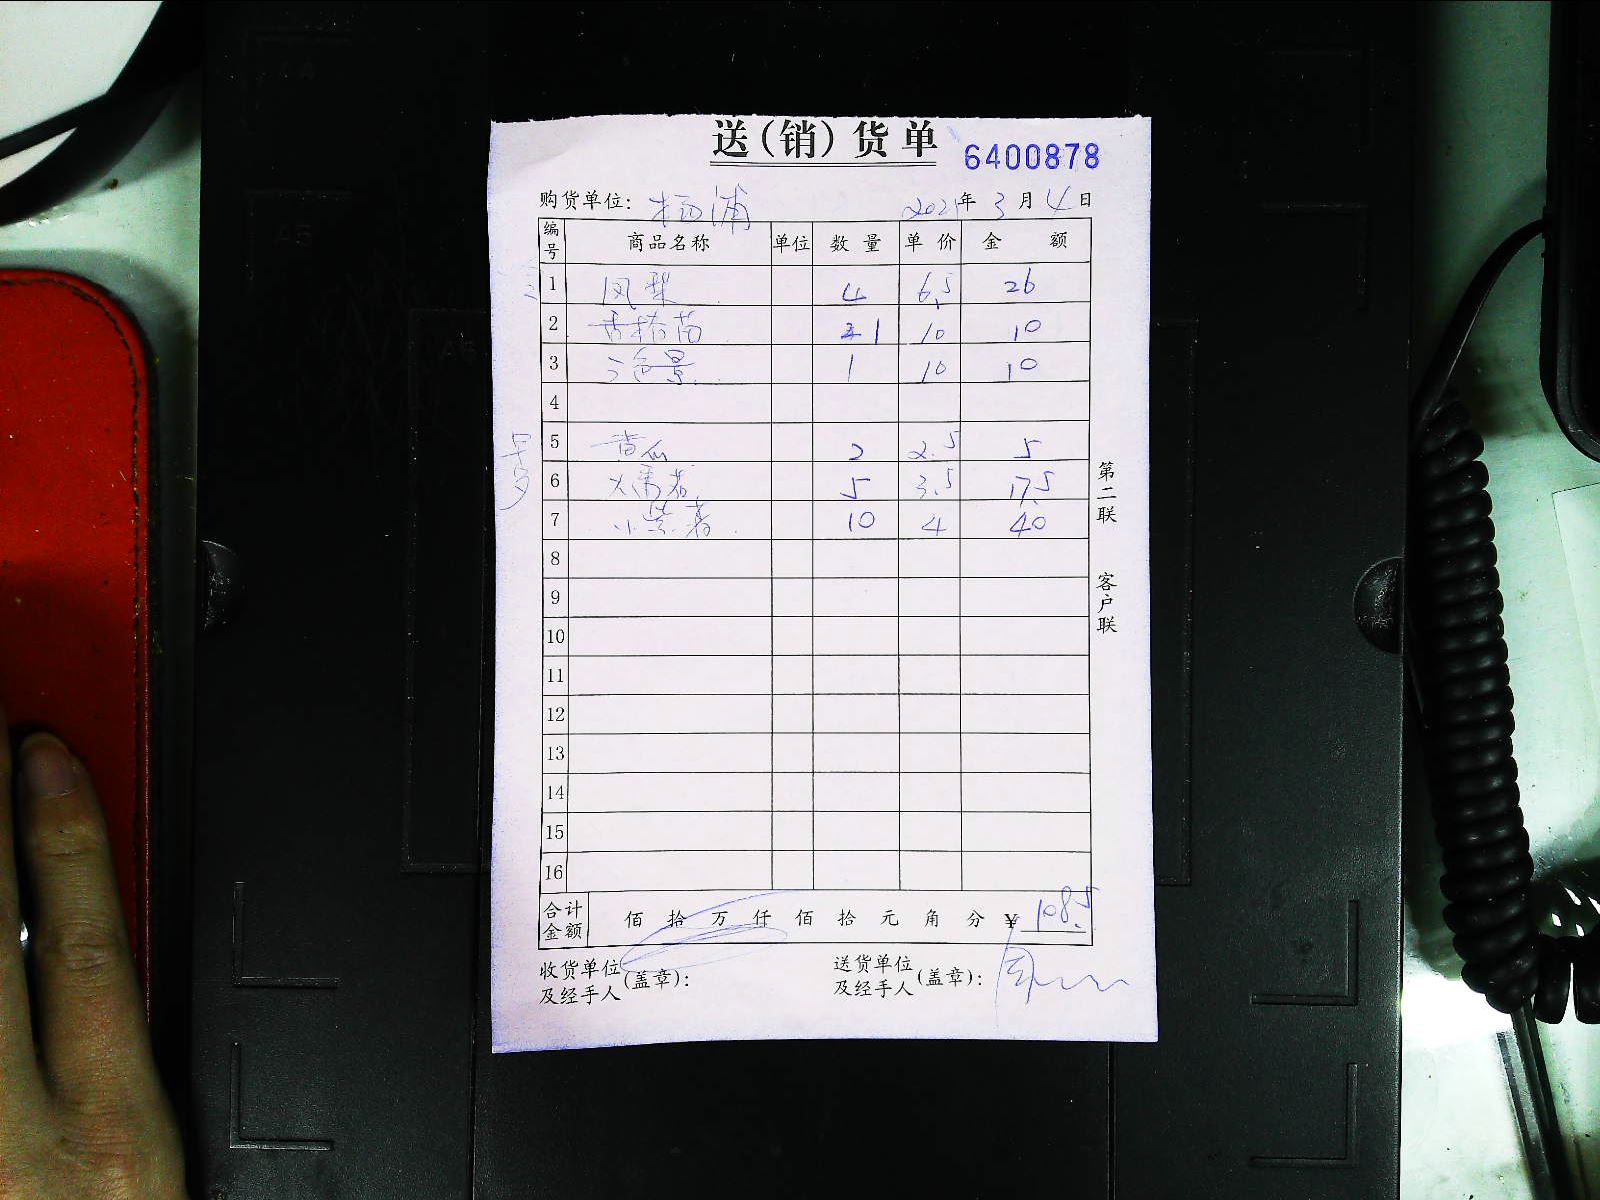 送(销)货单 6400878
购货单位: 杨浦 2021年3月4日
编号 商品名称 单位 数量 单价 金额
1 凤梨 4 6.5 26
2 1 10 10
3 三色堇 1 10 10
4
5 黄瓜 2 2.5 5
6 5 3.5 17.5
7 小紫薯 10 4 40
8
9
10
11
12
13
14
15
16
合计金额 佰 拾 万 仟 佰 拾 元 角 分 ¥ 108.5
收货单位及经手人(盖章): 送货单位及经手人(盖章):
第二联 客户联